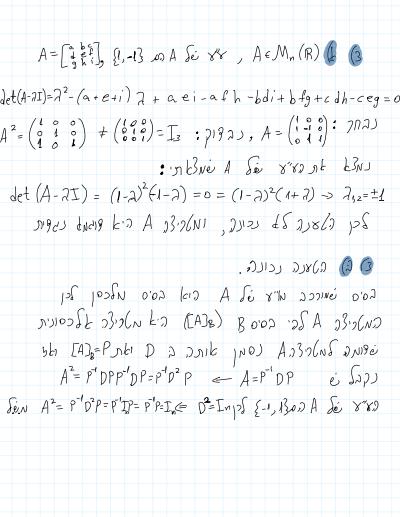 3) א) A∈Mₙ(R), ע"ע של A הם {1,-1}, A = [a b c; d e f; g h i]
det(A-λI)=λ²-(a+e+i)λ+aei-afh-bdi+bfg+cdh-ceg=0
נבחר: A = (1 0 0; 0 1 0; 0 1 -1), נבדוק: A² = (1 0 0; 0 1 0; 0 0 1) ≠ (1 0 0; 0 1 0; 0 0 1) = I₃
נמצא את הע"ע של A שמצאתי:
det(A-λI) = (1-λ)²(-1-λ) = 0 = (1-λ)²(1+λ) → λ₁,₂=±1
לכן הטענה לא נכונה, ומטריצה A היא דוגמא נגדית
3) ב) הטענה נכונה.
בסיס שמורכב מו"ע של A הוא בסיס מלכסן לכן
המטריצה A לפי בסיס B ([A]_B) היא מטריצה אלכסונית
שדומה למטריצה A נסמן אותה ב D ואת P=[A]_B ואז
נקבל ש A=P⁻¹DP ← A²=P⁻¹DPP⁻¹DP=P⁻¹D²P
הע"ע של A הם {-1,1} לכן D²=Iₙ ⇐ A²=P⁻¹D²P=P⁻¹IP=P⁻¹P=Iₙ משל